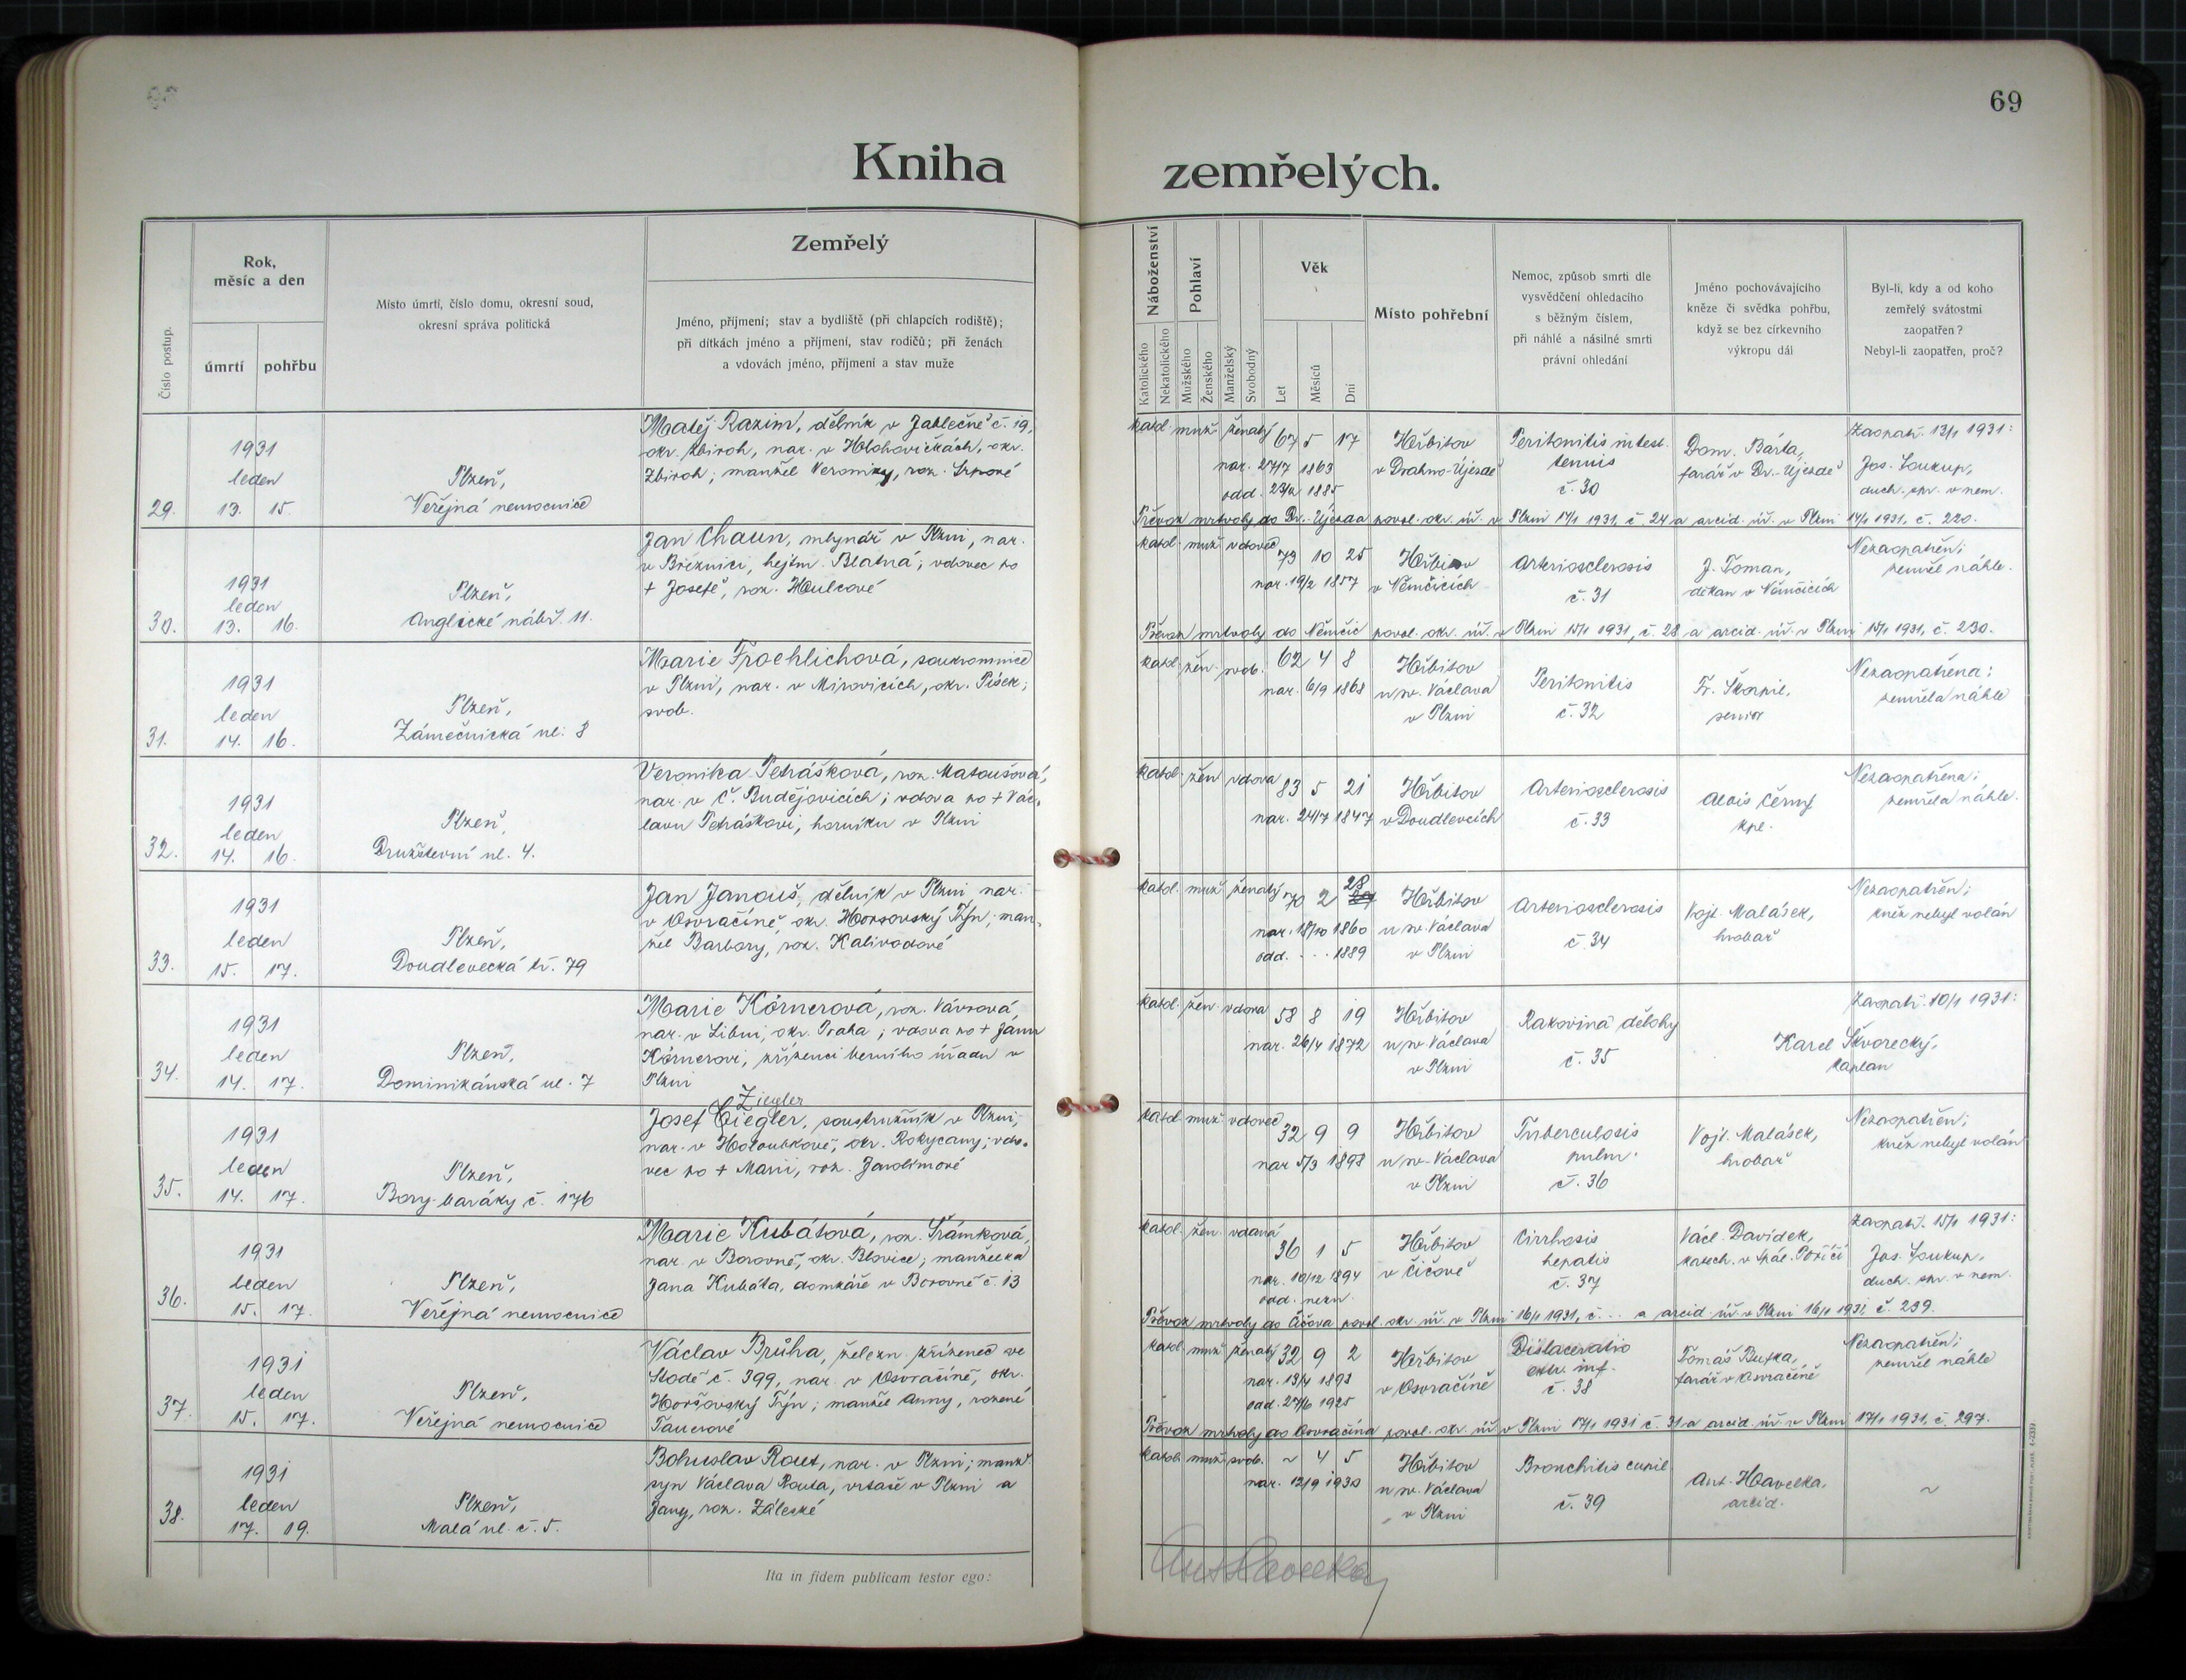 69
Kniha zemřelých.
Číslo postup.
Rok,
měsíc a den
úmrtí
pohřbu
Místo úmrtí, číslo domu, okresní soud,
okresní správa politická
Zemřelý
Jméno, příjmení; stav a bydliště (při chlapcích rodiště);
při dítkách jméno a příjmení, stav rodičů; při ženách
a vdovách jméno, příjmení a stav muže
Náboženství
Katolického
Nekatolického
Pohlaví
Mužského
Ženského
Manželský
Svobodný
Věk
Let
Měsíců
Dní
Místo pohřební
Nemoc, způsob smrti dle
vysvědčení ohledacího
s běžným číslem,
při náhlé a násilné smrti
právní ohledání
Jméno pochovávajícího
kněze či svědka pohřbu,
když se bez církevního
výkropu dál
Byl-li, kdy a od koho
zemřelý svátostmi
zaopatřen?
Nebyl-li zaopatřen, proč?
29.
1931
leden
13. 15.
Plzeň,
Veřejná nemocnice
Matěj Razím, dělník v Jablečně č. 19,
okr. Zbiroh, nar. v Hlohovičkách, okr.
Zbiroh; manžel Veroniky, roz. Srpové
katol. muž ženatý 67 5 17
nar. 27/7 1863
odd. 1885
Hřbitov
v Drahno-Újezdě
Peritonitis intest.
tenuis
č. 30
Dom. Bárta,
farář v Dr.-Újezdě
Zaopatř. 13/1 1931:
Jos. Soukup,
duch. spr. v nem.
Převoz mrtvoly do Dr.-Újezda povol. okr. úř. v Plzni 14/1 1931, č. 24 a arcid. úř. v Plzni 14/1 1931, č. 220.
30.
1931
leden
13. 16.
Plzeň,
Anglické nábř. 11.
Jan Chaun, mlynář v Plzni, nar.
v Březnici, hejtm. Blatná; vdovec po
+ Josefě, roz. Houlcové
katol. muž vdovec 73 10 25
nar. 19/2 1857
Hřbitov
v Němčicích
Arteriosclerosis
č. 31
J. Toman,
děkan v Němčicích
Nezaopatřen;
zemřel náhle.
Převoz mrtvoly do Němčic povol. okr. úř. v Plzni 15/1 1931, č. 28 a arcid. úř. v Plzni 15/1 1931, č. 230.
31.
1931
leden
14. 16.
Plzeň,
Zámečnická ul. 8
Marie Froehlichová, soukromnice
v Plzni, nar. v Mirovicích, okr. Písek;
svob.
katol. žen. svob. 62 4 8
nar. 6/9 1868
Hřbitov
u sv. Václava
v Plzni
Peritonitis
č. 32
Fr. Škorpil,
senior
Nezaopatřena;
zemřela náhle
32.
1931
leden
14. 16.
Plzeň,
Družstevní ul. 4.
Veronika Petrášková, roz. Matoušová,
nar. v Č. Budějovicích; vdova po + Vác-
lavu Petráškovi, horníku v Plzni
katol. žen vdova 83 5 21
nar. 24/7 1847
Hřbitov
v Doudlevcích
Arteriosclerosis
č. 33
Alois Černý
kpl.
Nezaopatřena;
zemřela náhle.
33.
1931
leden
15. 17.
Plzeň,
Doudlevecká tř. 79
Jan Janouš, dělník v Plzni nar.
v Osvračíně, okr. Horšovský Týn; man-
žel Barbory, roz. Kalivodové
katol. muž ženatý 70 2 28
nar. 18/10 1860
odd. . . . 1889
Hřbitov
u sv. Václava
v Plzni
Arteriosclerosis
č. 34
Vojt. Malásek,
hrobař
Nezaopatřen;
kněz nebyl volán
34.
1931
leden
14. 17.
Plzeň,
Dominikánská ul. 7
Marie Körnerová, roz. Vávrová,
nar. v Libni, okr. Praha; vdova po + Janu
Körnerovi, zřízenci berního úřadu v
Plzni
katol. žen vdova 58 8 19
nar. 26/4 1872
Hřbitov
u sv. Václava
v Plzni
Rakovina dělohy
č. 35
Karel Škvorecký,
kaplan
Zaopatř. 10/1 1931:
35.
1931
leden
14. 17.
Plzeň,
Bory-baráky č. 176
Ziegler
Josef Ciegler, soustružník v Plzni,
nar. v Holoubkově, okr. Rokycany; vdo-
vec po + Marii, roz. Jarolímové
katol. muž vdovec 32 9 9
nar 5/3 1898
Hřbitov
u sv. Václava
v Plzni
Tuberculosis
pulm.
č. 36
Vojt. Malásek,
hrobař
Nezaopatřen;
kněz nebyl volán
36.
1931
leden
15. 17.
Plzeň,
Veřejná nemocnice
Marie Kubátová, roz. Šrámková,
nar. v Borovně, okr. Blovice; manželka
Jana Kubáta, domkáře v Borovně č 13
katol. žen. vdaná 36 1 5
nar. 10/12 1894
odd. nezn.
Hřbitov
v Číčově
Cirrhosis
hepatis
č. 37
Václ. Davídek,
katech. v Spál. Poříčí
Zaopatř. 15/1 1931:
Jos. Soukup,
duch. spr. v nem.
Převoz mrtvoly do Číčova povol. okr. úř. v Plzni 16/1 1931, č. . . a arcid. úř. v Plzni 16/1 1931, č. 239.
37.
1931
leden
15. 17.
Plzeň,
Veřejná nemocnice
Václav Brůha, železn. zřízenec ve
Stodě č. 399, nar. v Osvračíně, okr.
Horšovský Týn; manžel Anny, rozené
Tauerové
katol. muž ženatý 32 9 2
nar. 13/4 1898
odd. 27/6 1925
Hřbitov
v Osvračíně
Dislaceratio
extr. inf.
č. 38
Tomáš
farář v Osvračíně
Nezaopatřen;
zemřel náhle
Převoz mrtvoly do Osvračína povol. okr. úř. v Plzni 17/1 1931 č. 31 a arcid. úř. v Plzni 17/1 1931, č. 297.
38.
1931
leden
17. 19.
Plzeň,
Malá ul. č. 5.
Bohuslav Rout, nar. v Plzni; manž.
syn Václava Routa, vrtače v Plzni a
Jany, roz. Záleské
katol. muž svob. ~ 4 5
nar. 12/9 1930
Hřbitov
u sv. Václava
v Plzni
Bronchitis
č. 39
Ant. Havelka,
arcid.
~
Ita in fidem publicam testor ego:
Ant Havelka